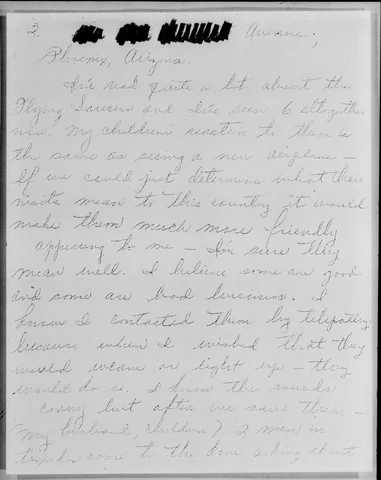 3. Avenue,
Phoenix, Arizona.
I've read quite a lot about the
Flying Saucers and I've seen 6 altogether
now. My children's reaction to them is
the same as seeing a new airplane -
If we could just determine what their
visits mean to this country it would
make them much more friendly
appearing to me - I'm sure they
mean well. I believe some are good
and some are bad business. I
know I contacted them by telepathy
because when I wished that they
would weave or light up - they
would do so. I know this sounds
corny but after we saw them -
(my husband, children) 2 men in
come to the door asking about